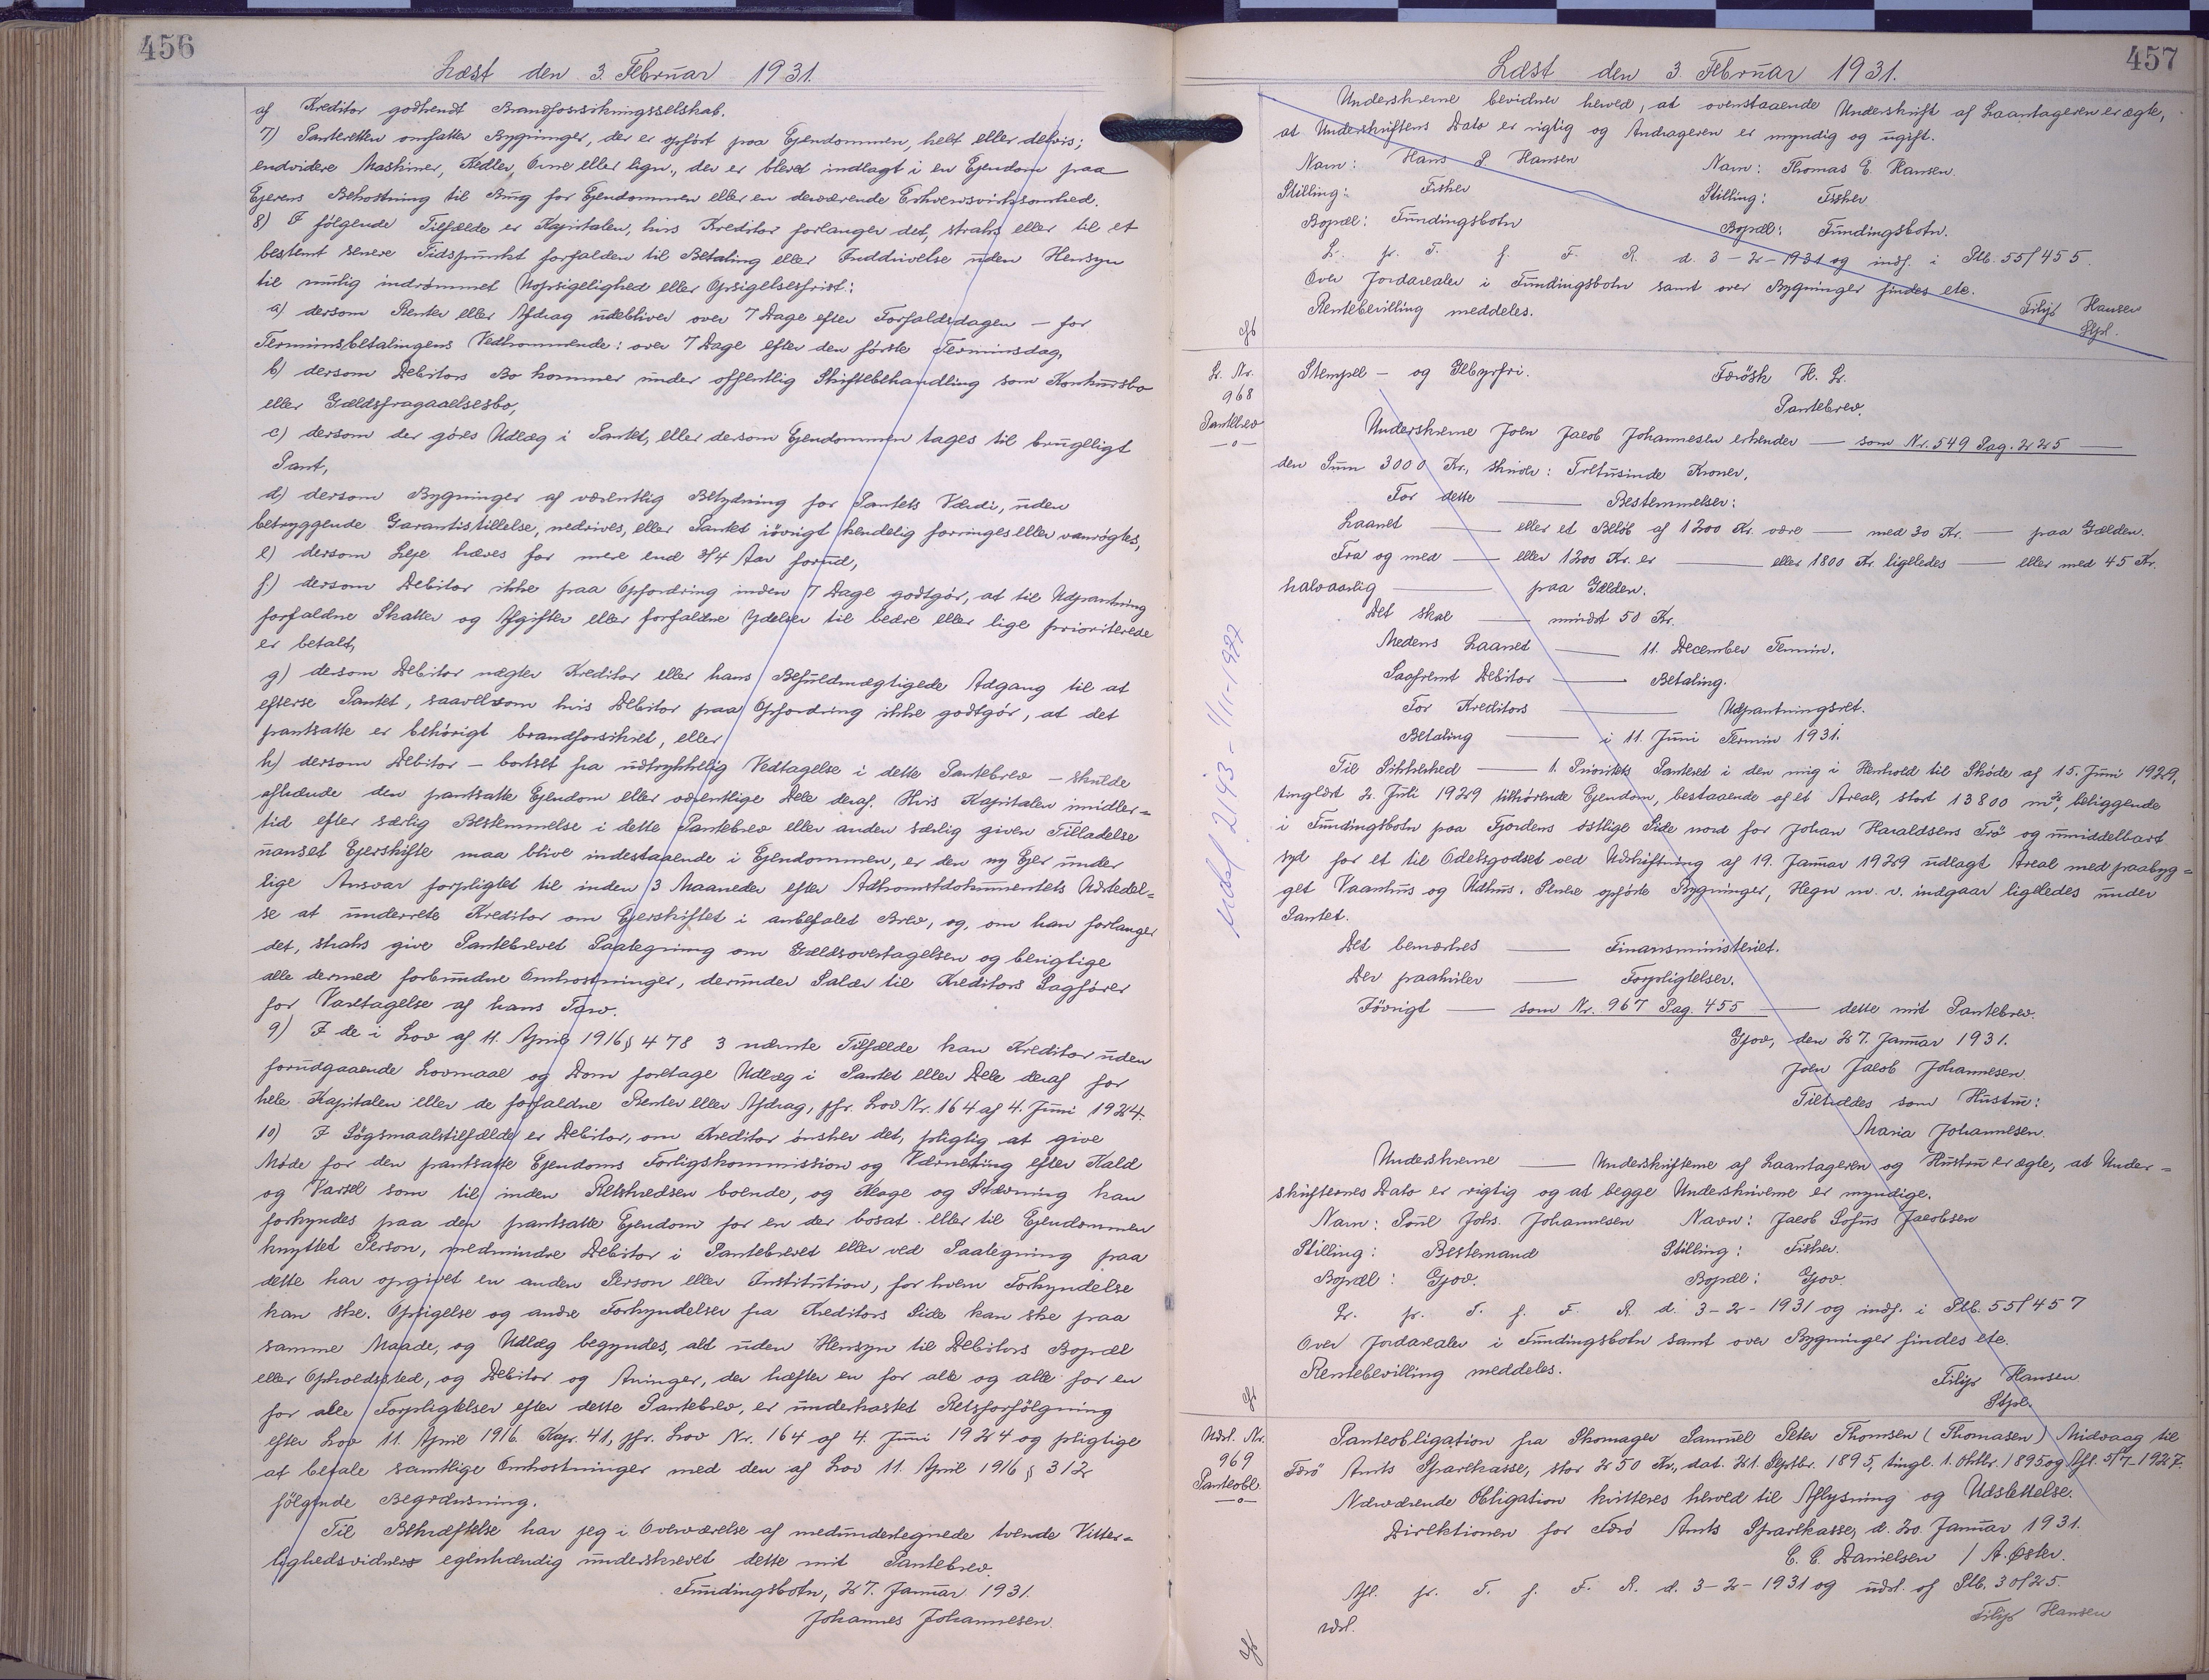 456
Læst den 3. Februar 1931.
af Kreditor godkendt Brandforsikringsselskab.
7) Panteretten omfatter Bygninger, der er opført paa Ejendommen, helt eller delvis;
endvidere Maskiner, Kedler, Ovne eller lign., der er blevet indlagt i en Ejendom paa
Ejerens Bekostning til Brug for Ejendommen eller en derværende Erhvervsvirksomhed.
8) I følgende Tilfælde er Kapitalen, hvis Kreditor forlanger det, straks eller til et
bestemt senere Tidspunkt forfalden til Betaling eller Inddrivelse uden Hensyn
til mulig indrømmet Uopsigelighed eller Opsigelsesfrist:
a) dersom Renter eller Afdrag udebliver over 7 Dage efter Forfaldsdagen — for
Terminsbetalingens Vedkommende: over 7 Dage efter den første Terminsdag,
b) dersom Debitors Bo kommer under offentlig Skiftebehandling som Konkursbo
eller Gældsfragaaelsesbo,
c) dersom der gøres Udlæg i Pantet, eller dersom Ejendommen tages til brugeligt
Pant,
d) dersom Bygninger af væsentlig Betydning for Pantets Værdi, uden
betryggende Garantistillelse, nedrives, eller Pantet iøvrigt kendelig forringes eller vanrøgtes,
e) dersom Leje hæves for mere end 3/4 Aar forud,
f) dersom Debitor ikke paa Opfordring inden 7 Dage godtgør, at til Udpantning
forfaldne Skatter og Afgifter eller forfaldne Ydelser til bedre eller lige prioriterede
er betalt,
g) dersom Debitor nægter Kreditor eller hans Befuldmægtigede Adgang til at
efterse Pantet, saavelsom hvis Debitor paa Opfordring ikke godtgør, at det
pantsatte er behørigt brandforsikret, eller
h) dersom Debitor — bortset fra udtrykkelig Vedtagelse i dette Pantebrev — skulde
afhænde den pantsatte Ejendom eller væsentlige Dele deraf. Hvis Kapitalen imidler=
tid efter særlig Bestemmelse i dette Pantebrev eller anden særlig given Tilladelse
uanset Ejerskifte maa blive indestaaende i Ejendommen, er den ny Ejer under
lige Ansvar forpligtet til inden 3 Maaneder efter Adkomstdokumentets Udstedel=
se at underrette Kreditor om Ejerskiftet i anbefalet Brev, og, om han forlanger
det, straks give Pantebrevet Paategning om Gældsovertagelsen og berigtige
alle dermed forbundne Omkostninger, derunder Salær til Kreditors Sagfører
for Varetagelse af hans Tarv.
9) I de i Lov af 11. April 1916 § 478 3 nævnte Tilfælde kan Kreditor uden
forudgaaende Lovmaal og Dom foretage Udlæg i Pantet eller Dele deraf for
hele Kapitalen eller de forfaldne Renter eller Afdrag, jfr. Lov Nr. 164 af 4. Juni 1924.
10) I Søgsmaalstilfælde er Debitor, om Kreditor ønsker det, pligtig at give
Møde for den pantsatte Ejendoms Forligskommission og Værneting efter Kald
og Varsel som til inden Retskredsen boende, og Klage og Stævning kan
forkyndes paa den pantsatte Ejendom for en der bosat eller til Ejendommen
knyttet Person, medmindre Debitor i Pantebrevet eller ved Paategning paa
dette har opgivet en anden Person eller Institution, for hvem Forkyndelse
kan ske. Opsigelse og andre Forkyndelser fra Kreditors Side kan ske paa
samme Maade, og Udlæg begyndes, alt uden Hensyn til Debitors Bopæl
eller Opholdssted, og Debitor og Arvinger, der hæfter en for alle og alle for en
for alle Forpligtelser efter dette Pantebrev, er underkastet Retsforfølgning
efter Lov 11. April 1916 Kap. 41, jfr. Lov Nr. 164 af 4. Juni 1924 og pligtige
at betale samtlige Omkostninger med den af Lov 11. April 1916 § 312
følgende Begrænsning.
Til Bekræftelse har jeg i Overværelse af medundertegnede tvende Vitter=
lighedsvidner egenhændig underskrevet dette mit Pantebrev.
Fundingsbotn, 27. Januar 1931.
Johannes Johannesen.
457
Læst den 3. Februar 1931.
Underskrevne bevidner herved, at ovenstaaende Underskrift af Laantageren er ægte,
at Underskriftens Dato er rigtig og Andrageren er myndig og ugift.
Navn: Hans P. Hansen Navn: Thomas E. Hansen.
Stilling: Fisker Stilling: Fisker
Bopæl: Fundingsbotn Bopæl: Fundingsbotn.
L. fr. T. f. F. R. d. 3-2-1931 og indf. i Ptb. 55/455.
Over Jordarealer i Fundingsbotn samt over Bygninger findes etc.
Rentebevilling meddeles.
Filip Hansen
Stpl.
L. Nr.
968
Pantebrev
-o-
Stempel- og Gebyrfri.
Færøsk H. L.
Pantebrev.
Underskrevne Joen Jacob Johannesen erkender — som Nr. 549 Pag. 225 —
den Sum 3000 Kr., skriver: Tretusinde Kroner.
For dette — Bestemmelser:
Laanet — eller et Beløb af 1200 Kr. være — med 30 Kr. — paa Gælden.
Fra og med — eller 1200 Kr. er — eller 1800 Kr. ligeledes — eller med 45 Kr.
halvaarlig — paa Gælden.
Det skal — mindst 50 Kr.
Medens Laanet — 11. December Termin.
Saafremt Debitor — Betaling.
For Kreditors — Udpantningsret.
Betaling — i 11. Juni Termin 1931.
Til Sikkerhed — 1. Prioritets Panteret i den mig i Henhold til Skøde af 15. Juni 1929,
tinglæst 2. Juli 1929 tilhørende Ejendom, bestaaende af et Areal, stort 13800 m², beliggende
i Fundingsbotn paa Fjordens østlige Side nord for Johan Haraldsens Trø og umiddelbart
syd for et til Odelsgodset ved Udskiftning af 19. Januar 1929 udlagt Areal med paabyg=
get Vaanhus og Udhus. Senere opførte Bygninger, Hegn m. v. indgaar ligeledes under
Pantet.
Det bemærkes — Finansministeriet.
Der paahviler — Forpligtelser.
Iøvrigt — som Nr. 967 Pag. 455 — dette mit Pantebrev.
Gjov, den 27. Januar 1931.
Joen Jacob Johannesen.
Tiltrædes som Hustru:
Maria Johannesen.
Underskrevne — Underskrifterne af Laantageren og Hustru er ægte, at Under=
skrifternes Dato er rigtig og at begge Underskriverne er myndige.
Navn: Poul Johs. Johannesen Navn: Jacob Sofus Jacobsen
Stilling: Bestemand Stilling: Fisker.
Bopæl: Gjov. Bopæl: Gjov.
L. fr. T. f. F. R. d. 3-2-1931 og indf. i Ptb. 55/457
Over Jordarealer i Fundingsbotn samt over Bygninger findes etc.
Rentebevilling meddeles.
Filip Hansen
Stpl.
Udsl. Nr.
969
Panteobl.
-o-
Panteobligation fra Skomager Samuel Peter Thomsen (Thomasen) Midvaag til
Færø Amts Sparekasse, stor 250 Kr., dat. 21. Septbr. 1895, tingl. 1. Oktbr. 1895 og Afl. 5/7-1927.
Nærværende Obligation kvitteres herved til Aflysning og Udslettelse.
Direktionen for Færø Amts Sparekasse, d. 20. Januar 1931.
C. C. Danielsen / A. Øster.
Afl. fr. T. f. F. R. d. 3-2-1931 og udsl. af Ptb. 30/25.
Filip Hansen
udsl.